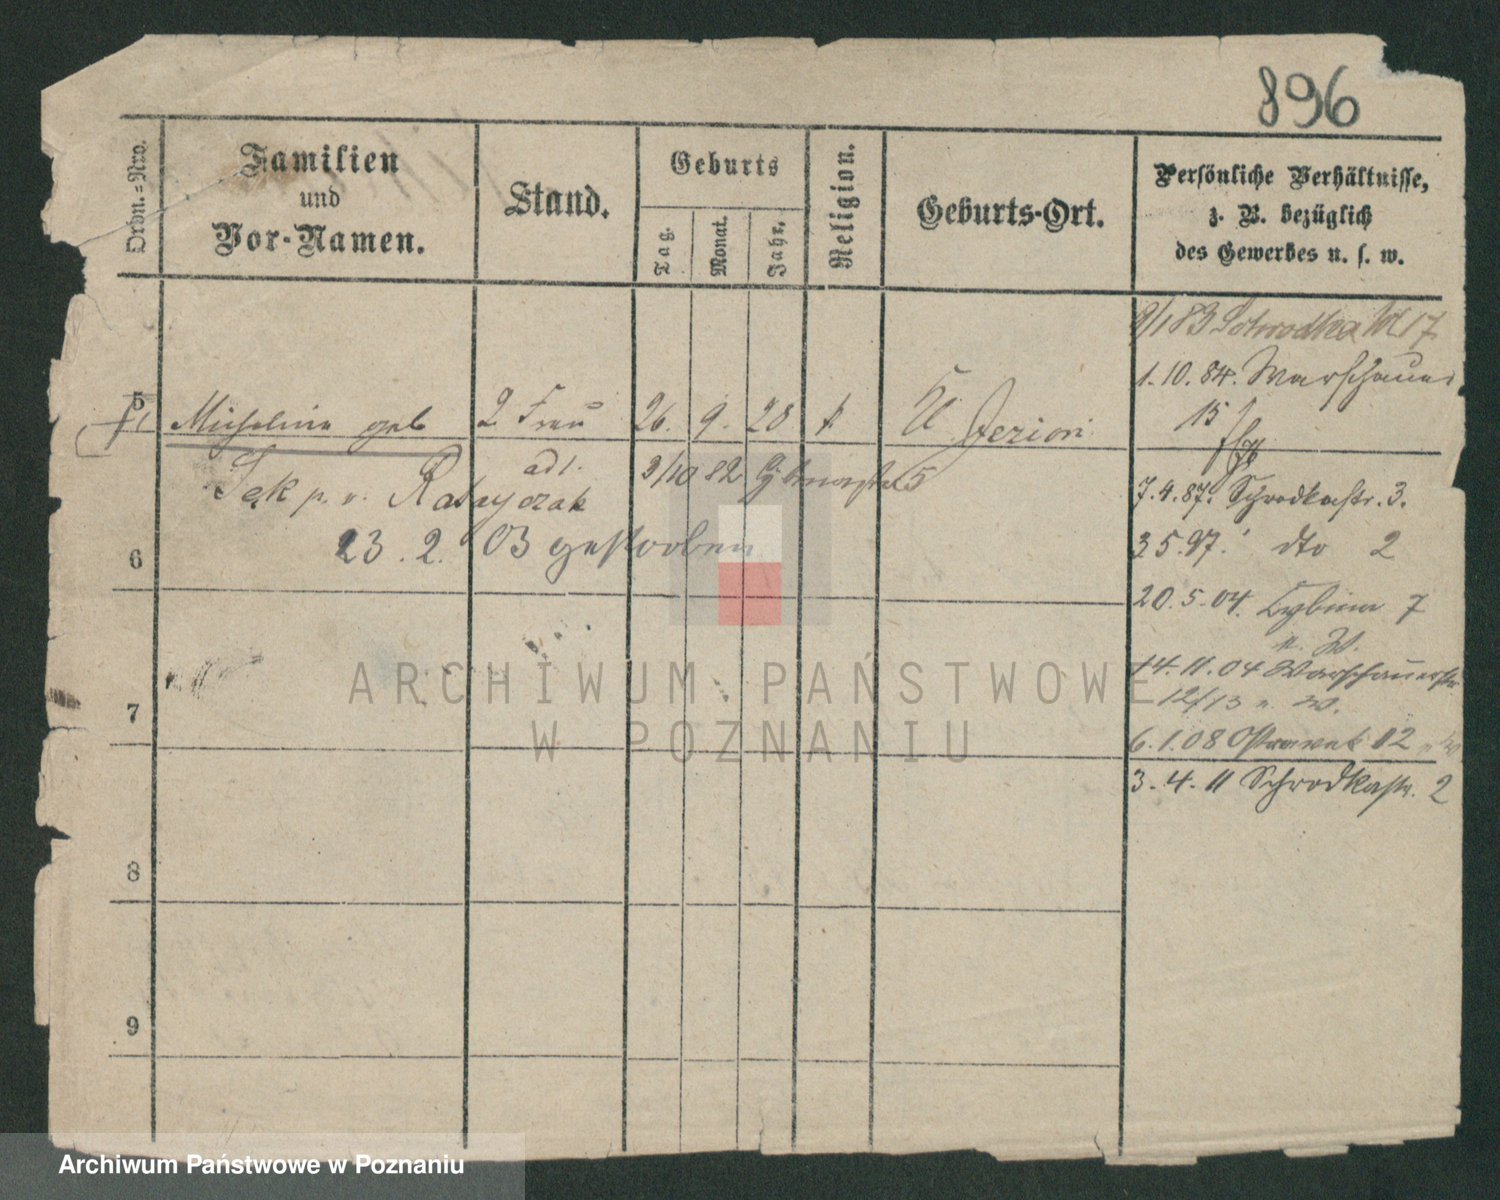 896
Ordn.=Nro.
Familien
und
Vor-Namen.
Stand.
Geburts
Tag.
Monat.
Jahr.
Religion.
Geburts-Ort.
Persönliche Verhältnisse,
z. B. bezüglich
des Gewerbes u. s. w.
9/1 83 Schrodka 17
1.10.84. Warschauer
15
5
Micheline geb
2. Frau
26. 9. 28 k
Jeziori
adl. 3/10 82 5
p. v. Ratayczak
7.4.87. Schrodkastr. 3.
6
23.2.03 gestorben
3 5.97. dto 2
20.5.04. Cybina 7
n. W.
14.11.04 Warschauerstr
12/13 n. W.
7
6.1.08 Ostrowek 12
3.4.11 Schrodkastr. 2
8
9
ARCHIWUM PAŃSTWOWE
W POZNANIU
Archiwum Państwowe w Poznaniu